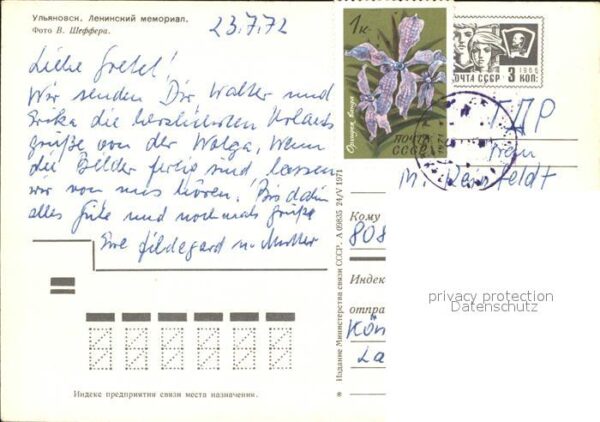 Ульяновск. Ленинский мемориал.
Фото В. Шеффера.
23.7.72
Liebe Gretel!
Wir senden Dir Walter und
Erika die herzlichsten Urlaubs
grüße von der Wolga, Wenn
die Bilder fertig sind, lassen
wir von uns hören. Bis dahin
alles Gute und nochmals Grüße
Eure Hildegard u. Mutter
1к
Орхидея Ванда
ПОЧТА
СССР
1971
1966
ПОЧТА СССР 3 КОП.
ГДР
Frau
M.
Кому
808
Индекс
отправ
Kön
La
privacy protection
Datenschutz
Издание Министерства связи СССР. А 09835 24/V 1971
Индекс предприятия связи места назначения.